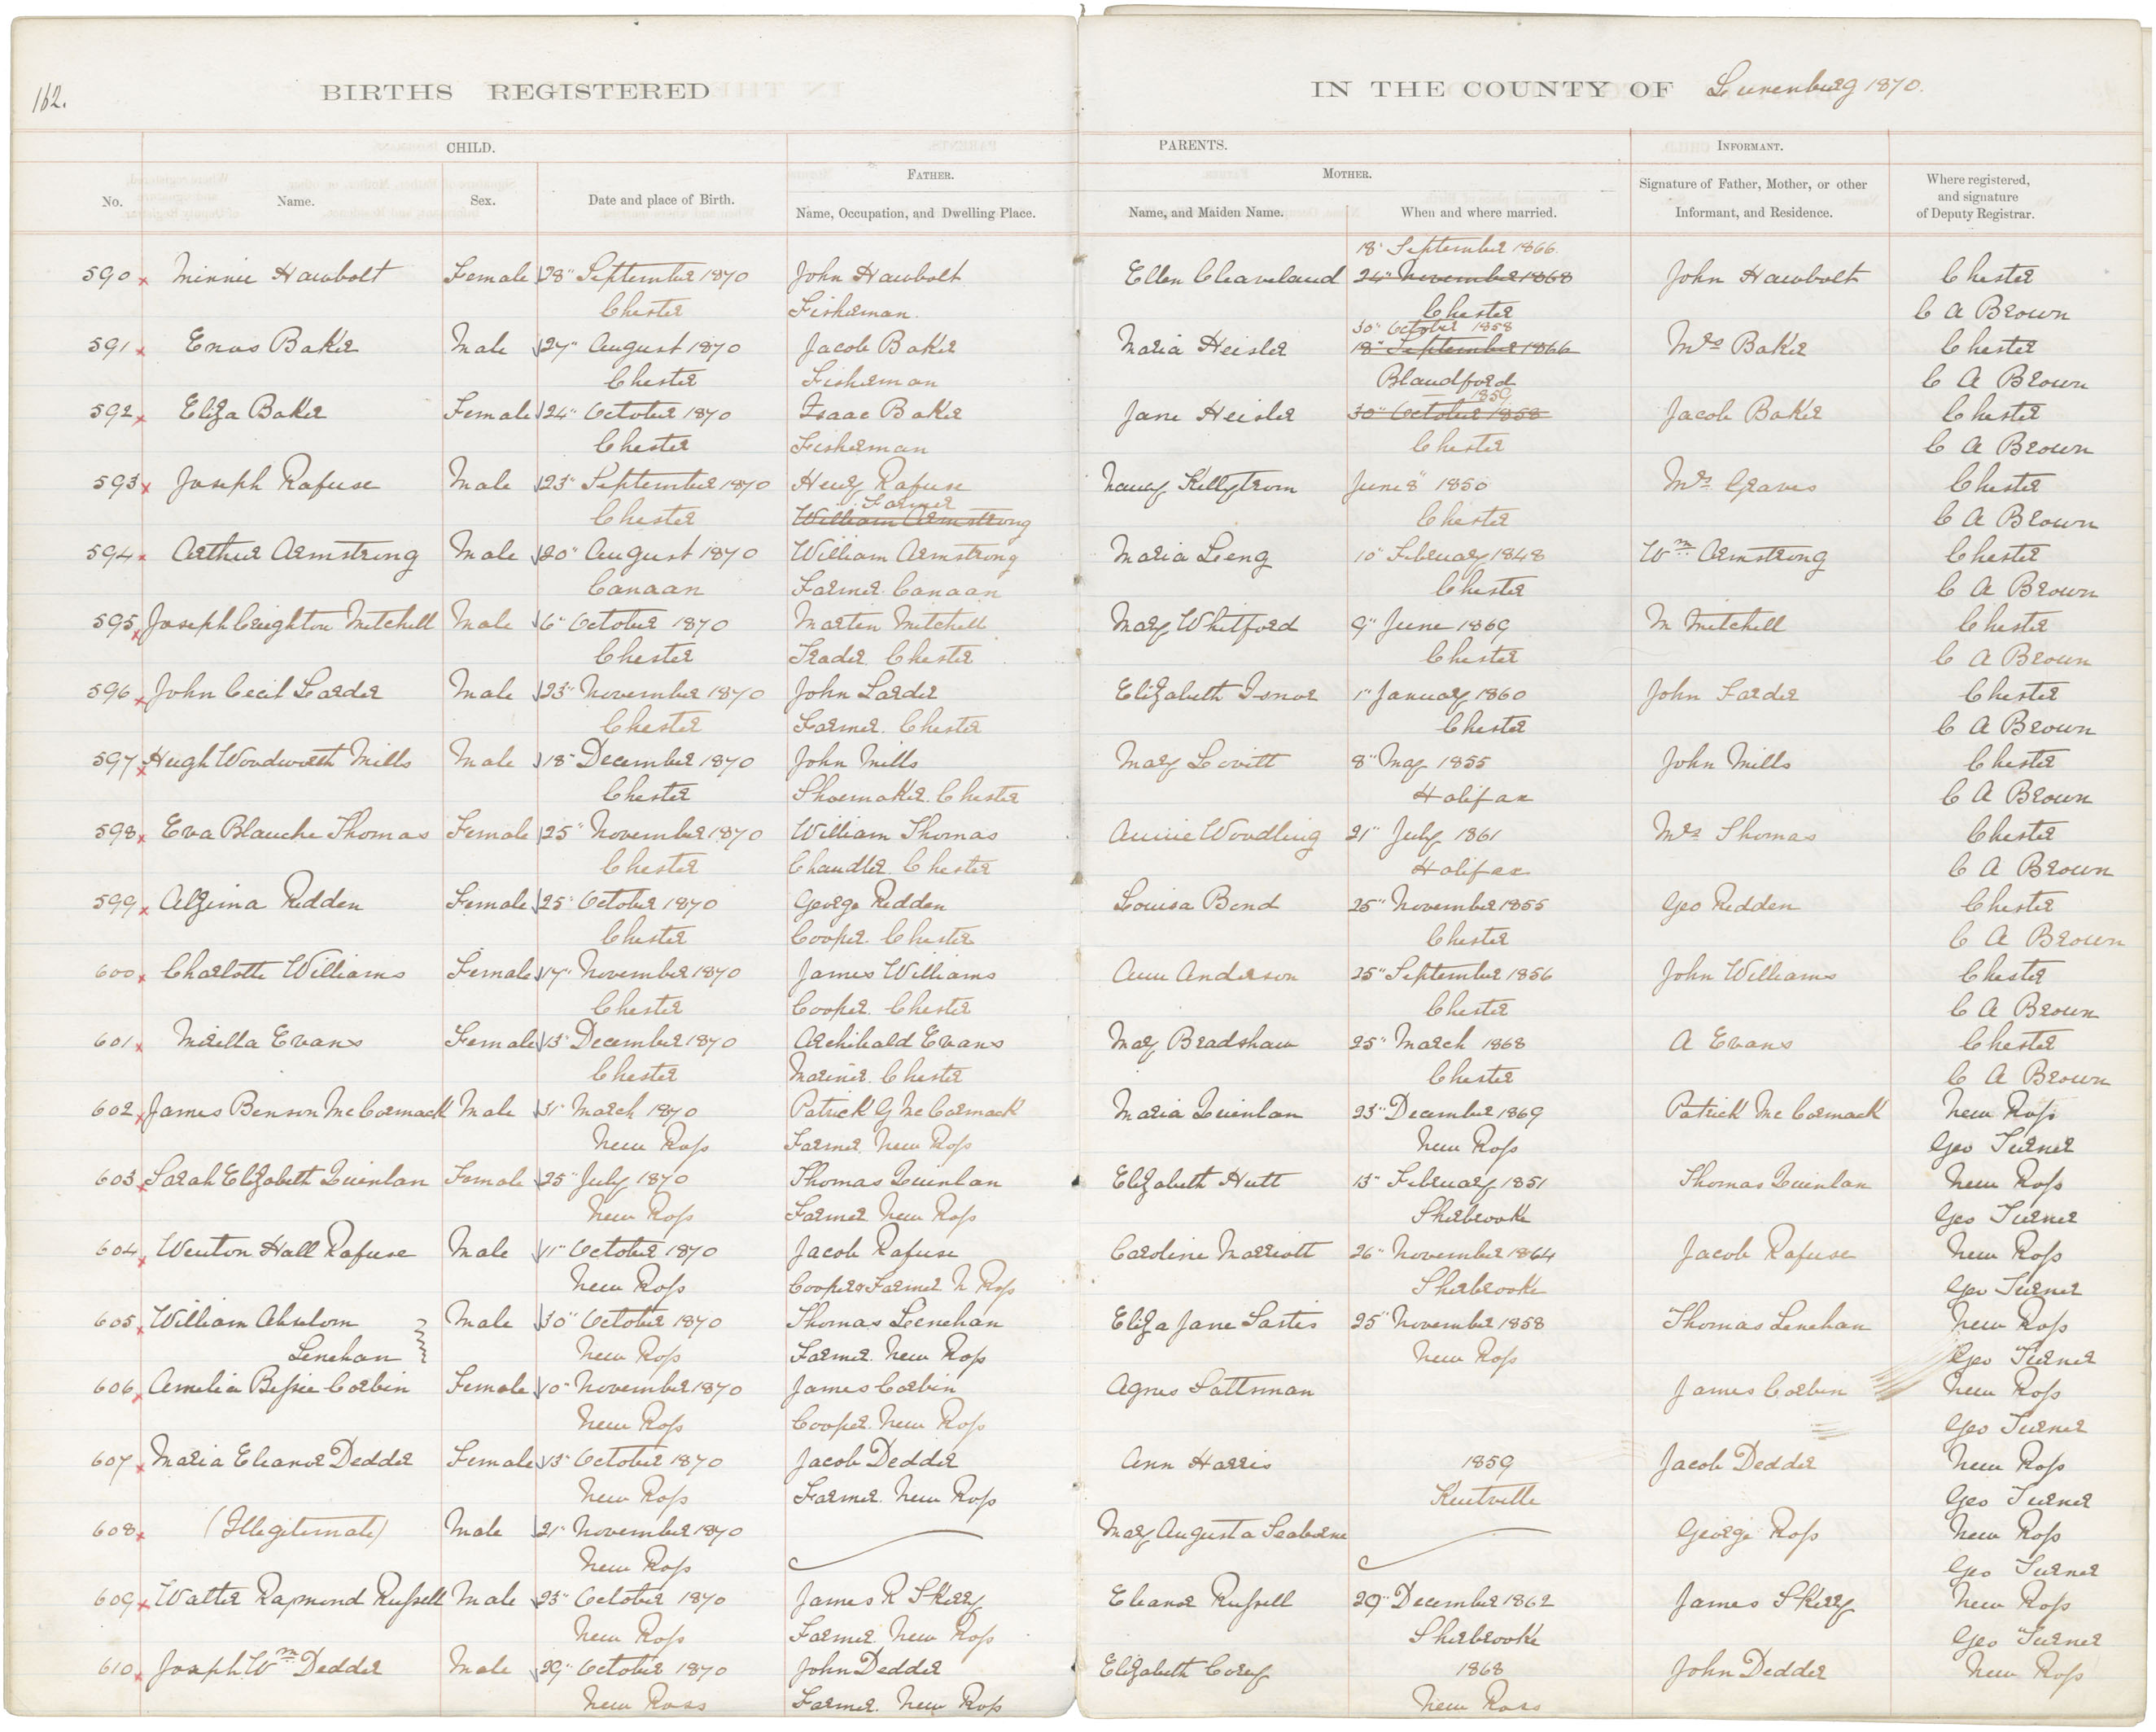 162.
BIRTHS REGISTERED IN THE COUNTY OF Lunenburg 1870.
CHILD. PARENTS. INFORMANT.
FATHER. MOTHER.
No. Name. Sex. Date and place of Birth. Name, Occupation, and Dwelling Place. Name, and Maiden Name. When and where married. Signature of Father, Mother, or other Informant, and Residence. Where registered, and signature of Deputy Registrar.
18" September 1866.
590 Minnie Hawbolt Female 28" September 1870 John Hawbolt Ellen Cleaveland 24" November 1868 John Hawbolt Chester
Chester Fisherman. Chester C A Brown
30" October 1858
591 Enos Baker Male 27" August 1870 Jacob Baker Maria Heisler 18" September 1866 Mrs Baker Chester
Chester Fisherman Blandford C A Brown
1859
592 Eliza Baker Female 24" October 1870 Isaac Baker Jane Heisler 30" October 1858 Jacob Baker Chester
Chester Fisherman Chester C A Brown
593 Joseph Rafuse Male 23" September 1870 Henry Rafuse Nancy June 8" 1850 Mrs Graves Chester
Farmer
Chester William Armstrong Chester C A Brown
594 Arthur Armstrong Male 20" August 1870 William Armstrong Maria Leng 10" February 1848 Wm Armstrong Chester
Canaan Farmer. Canaan Chester C A Brown
595 Joseph Creighton Mitchell Male 6" October 1870 Martin Mitchell Mary Whitford 9" June 1869 M Mitchell Chester
Chester Trader. Chester Chester C A Brown
596 John Cecil Larder Male 23" November 1870 John Larder Elizabeth Isnor 1" January 1860 John Larder Chester
Chester Farmer. Chester Chester C A Brown
597 Hugh Woodworth Mills Male 18" December 1870 John Mills Mary Lovitt 8" May 1855 John Mills Chester
Chester Shoemaker. Chester Halifax C A Brown
598 Eva Blanche Thomas Female 25" November 1870 William Thomas Annie Woodling 21" July 1861 Mrs Thomas Chester
Chester Chandler. Chester Halifax C A Brown
599 Alzima Redden Female 25" October 1870 George Redden Louisa Bond 25" November 1855 Geo Redden Chester
Chester Cooper. Chester Chester C A Brown
600 Charlotte Williams Female 17" November 1870 James Williams Ann Anderson 25" September 1856 John Williams Chester
Chester Cooper. Chester Chester C A Brown
601 Mirella Evans Female 13" December 1870 Archibald Evans Mary Bradshaw 25" March 1868 A Evans Chester
Chester Mariner. Chester Chester C A Brown
602 James Benson McCormack Male 31" March 1870 Patrick G McCormack Maria Quinlan 23" December 1869 Patrick McCormack New Ross
New Ross Farmer. New Ross New Ross Geo Turner
603 Sarah Elizabeth Quinlan Female 25" July 1870 Thomas Quinlan Elizabeth Hutt 13" February 1851 Thomas Quinlan New Ross
New Ross Farmer New Ross Sherbrooke Geo Turner
604 Wenton Hall Rafuse Male 11" October 1870 Jacob Rafuse Caroline Marriott 26" November 1864 Jacob Rafuse New Ross
New Ross Cooper & Farmer N Ross Sherbrooke Geo Turner
605 William Absolom Male 30" October 1870 Thomas Leenehan Eliza Jane 25" November 1858 Thomas Lenehan New Ross
Lenehan New Ross Farmer. New Ross New Ross Geo Turner
606 Amelia Bessie Corbin Female 10" November 1870 James Corbin Agnes James Corbin New Ross
New Ross Cooper. New Ross Geo Turner
607 Maria Eleanor Dedder Female 13" October 1870 Jacob Dedder Ann Harris 1859 Jacob Dedder New Ross
New Ross Farmer. New Ross Kentville Geo Turner
608 (Illegitimate) Male 21" November 1870 Mary Augusta Seaborne George Ross New Ross
New Ross Geo Turner
609 Walter Raymond Russell Male 23" October 1870 James R Skerry Eleanor Russell 29" December 1862 James Skerry New Ross
New Ross Farmer. New Ross Sherbrooke Geo Turner
610 Joseph Wm Dedder Male 29" October 1870 John Dedder Elizabeth Corey 1868 John Dedder New Ross
New Ross Farmer. New Ross New Ross